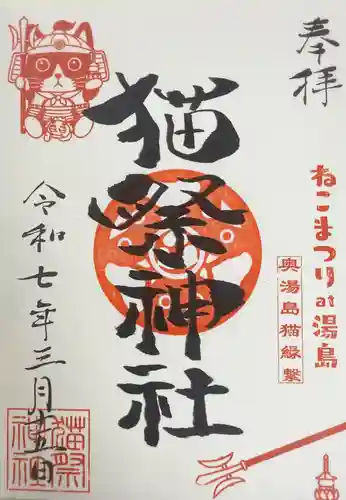 奉拝
ねこまつり at 湯島
奥湯島猫縁繋
猫祭神社
令和七年三月十五日
猫祭神社